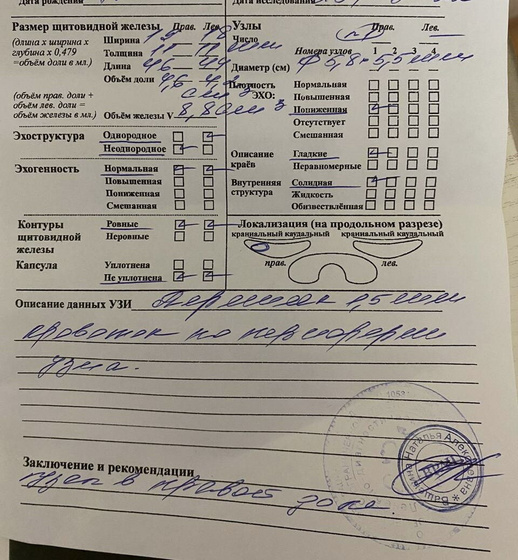 Дата рождения
Дата исследования
Размер щитовидной железы Прав. Лев.
(длина х ширина х глубина х 0,479 =объём доли в мл.)
Ширина
Толщина 11 11 мм
Длина 46 44
Объём доли 4,6 4,2
(объём прав. доли + объём лев. доли = объёму железы в мл.)
см 3
Объём железы V 8,8 см 3
Эхоструктура Однородное
Неоднородное
Эхогенность Нормальная
Повышенная
Пониженная
Смешанная
Контуры щитовидной железы
Ровные
Неровные
Капсула Уплотнена
Не уплотнена
Узлы Прав. Лев.
Число
Номера узлов 1 2 3 4
Диаметр (см) ф 5,8 × 5,5 мм
Плотность ЭХО:
Нормальная
Повышенная
Пониженная
Отсутствует
Смешанная
Описание краёв
Гладкие
Неравномерные
Внутренняя структура
Солидная
Жидкость
Обызвествлённая
Локализация (на продольном разрезе)
краниальный каудальный краниальный каудальный
прав. лев.
Описание данных УЗИ Перешеек 1,5 мм
кровоток по периферии
узла.
Заключение и рекомендации
Узел в правой доле.
Наталья
ВРАЧ